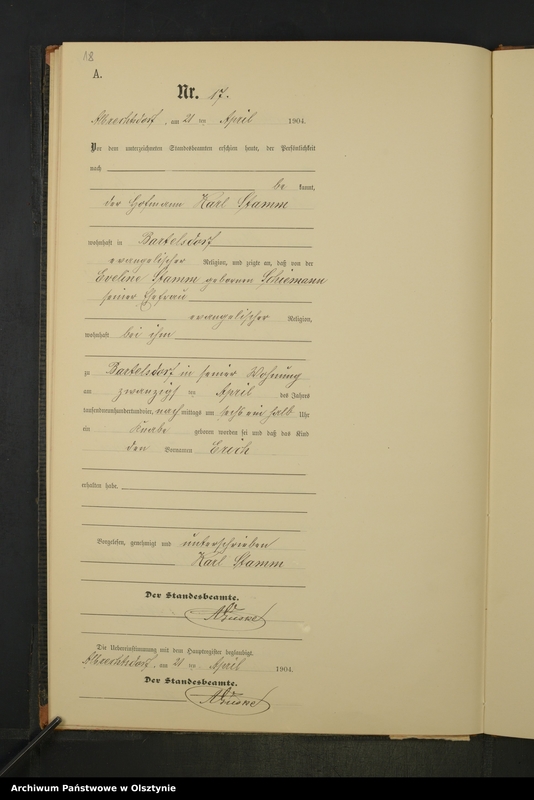 18
A.
Nr. 17.
Albrechtsdorf, am 21 ten April 1904.
Vor dem unterzeichneten Standesbeamten erschien heute, der Persönlichkeit
nach
be kannt,
der Hofmann Karl Stamm
wohnhaft in Bartelsdorf
evangelischer Religion, und zeigte an, daß von der
Eveline Stamm geborenen Schiemann
seiner Ehefrau
evangelischer Religion,
wohnhaft bei ihm
zu Bartelsdorf in seiner Wohnung
am zwanzigsten April des Jahres
tausendneunhundertundvier, nach mittags um sechs ein halb Uhr
ein Knabe geboren worden sei und daß das Kind
den Vornamen Erich
erhalten habe.
Vorgelesen, genehmigt und unterschrieben
Karl Stamm
Der Standesbeamte.
Die Uebereinstimmung mit dem Hauptregister beglaubigt.
Albrechtsdorf, am 21 ten April 1904.
Der Standesbeamte.
Archiwum Państwowe w Olsztynie